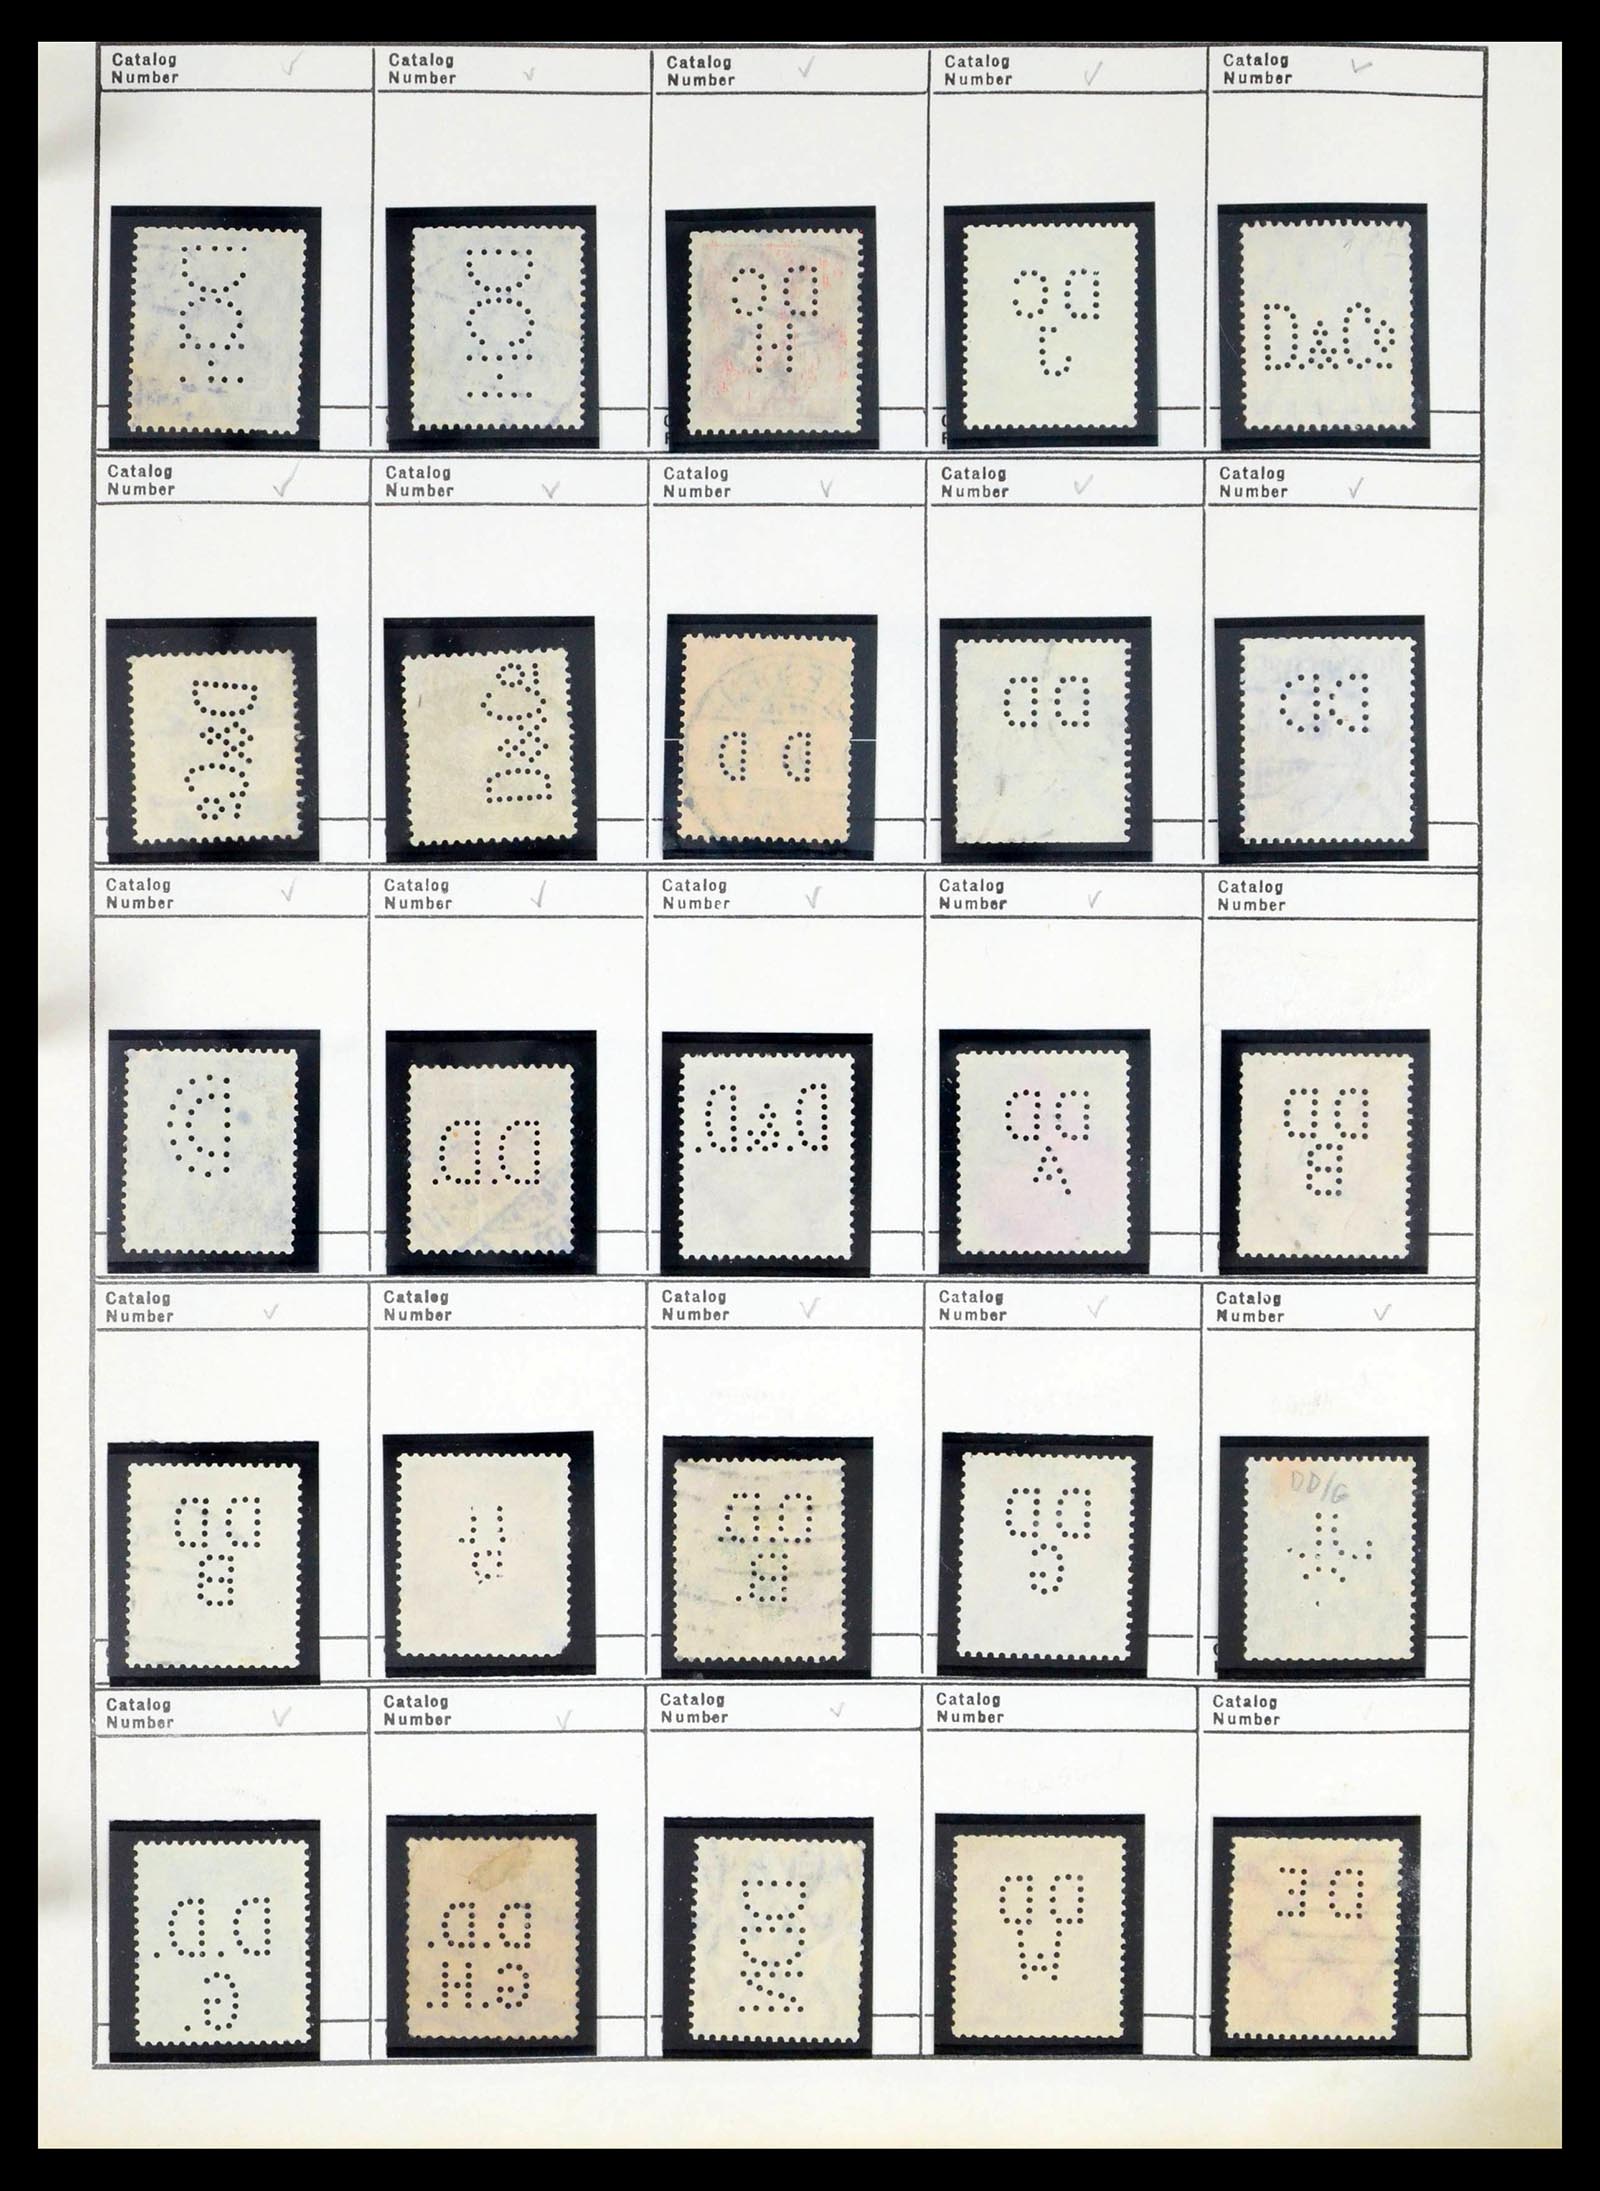 Catalog Number ✓ Catalog Number ✓ Catalog Number ✓ Catalog Number ✓ Catalog Number ✓
D&Co
Catalog Number ✓ Catalog Number ✓ Catalog Number ✓ Catalog Number ✓ Catalog Number ✓
D&Co D&Co D D DD
Catalog Number ✓ Catalog Number ✓ Catalog Number ✓ Catalog Number ✓ Catalog Number
D.D. D.&D. DD DD
A B
Catalog Number ✓ Catalog Number Catalog Number ✓ Catalog Number ✓ Catalog Number ✓
DD DD DD DD/G
B B G
Catalog Number ✓ Catalog Number ✓ Catalog Number ✓ Catalog Number Catalog Number
D.D. D.D. DD DE
G. G.H. H